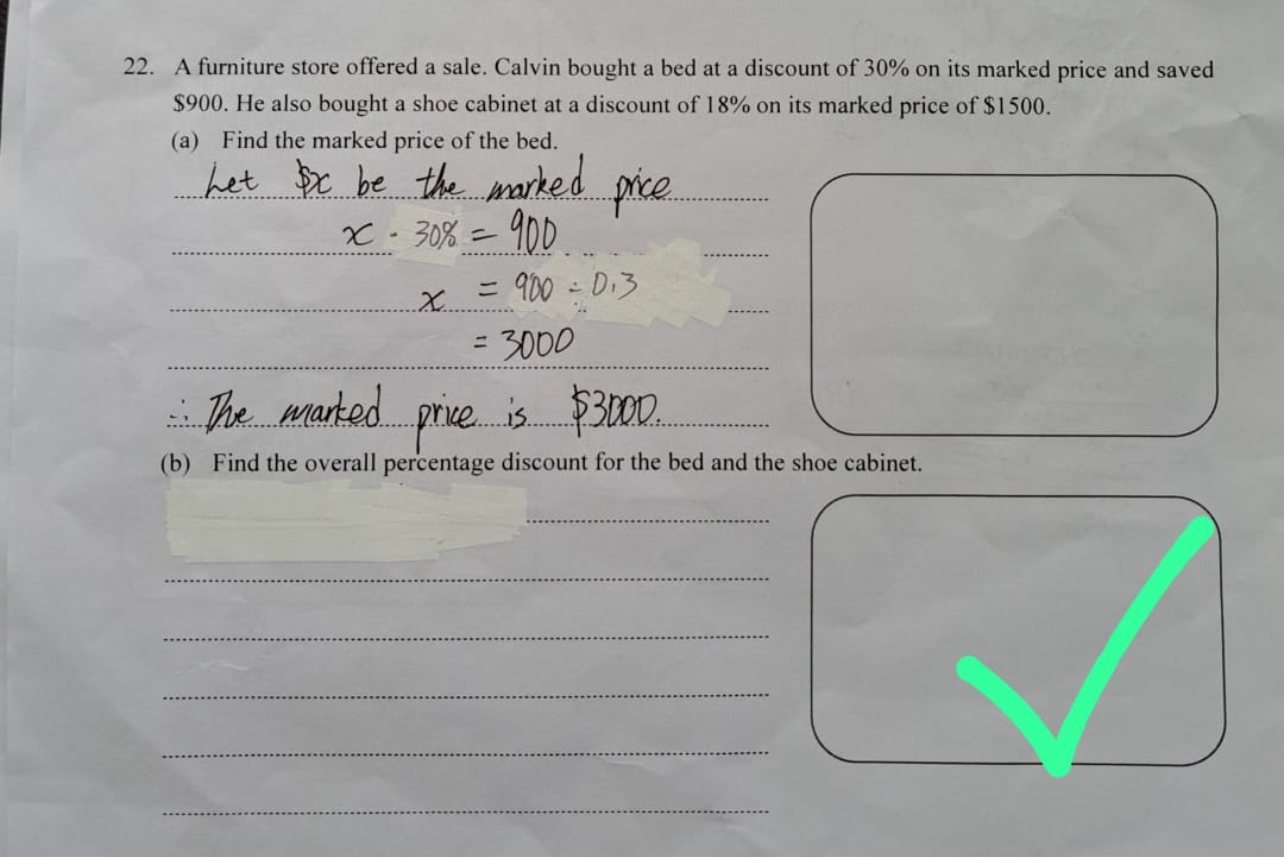 22. A furniture store offered a sale. Calvin bought a bed at a discount of 30% on its marked price and saved
$900. He also bought a shoe cabinet at a discount of 18% on its marked price of $1500.
(a) Find the marked price of the bed.
Let $x be the marked price
x · 30% = 900
x = 900 ÷ 0.3
= 3000
∴ The marked price is $3000.
(b) Find the overall percentage discount for the bed and the shoe cabinet.